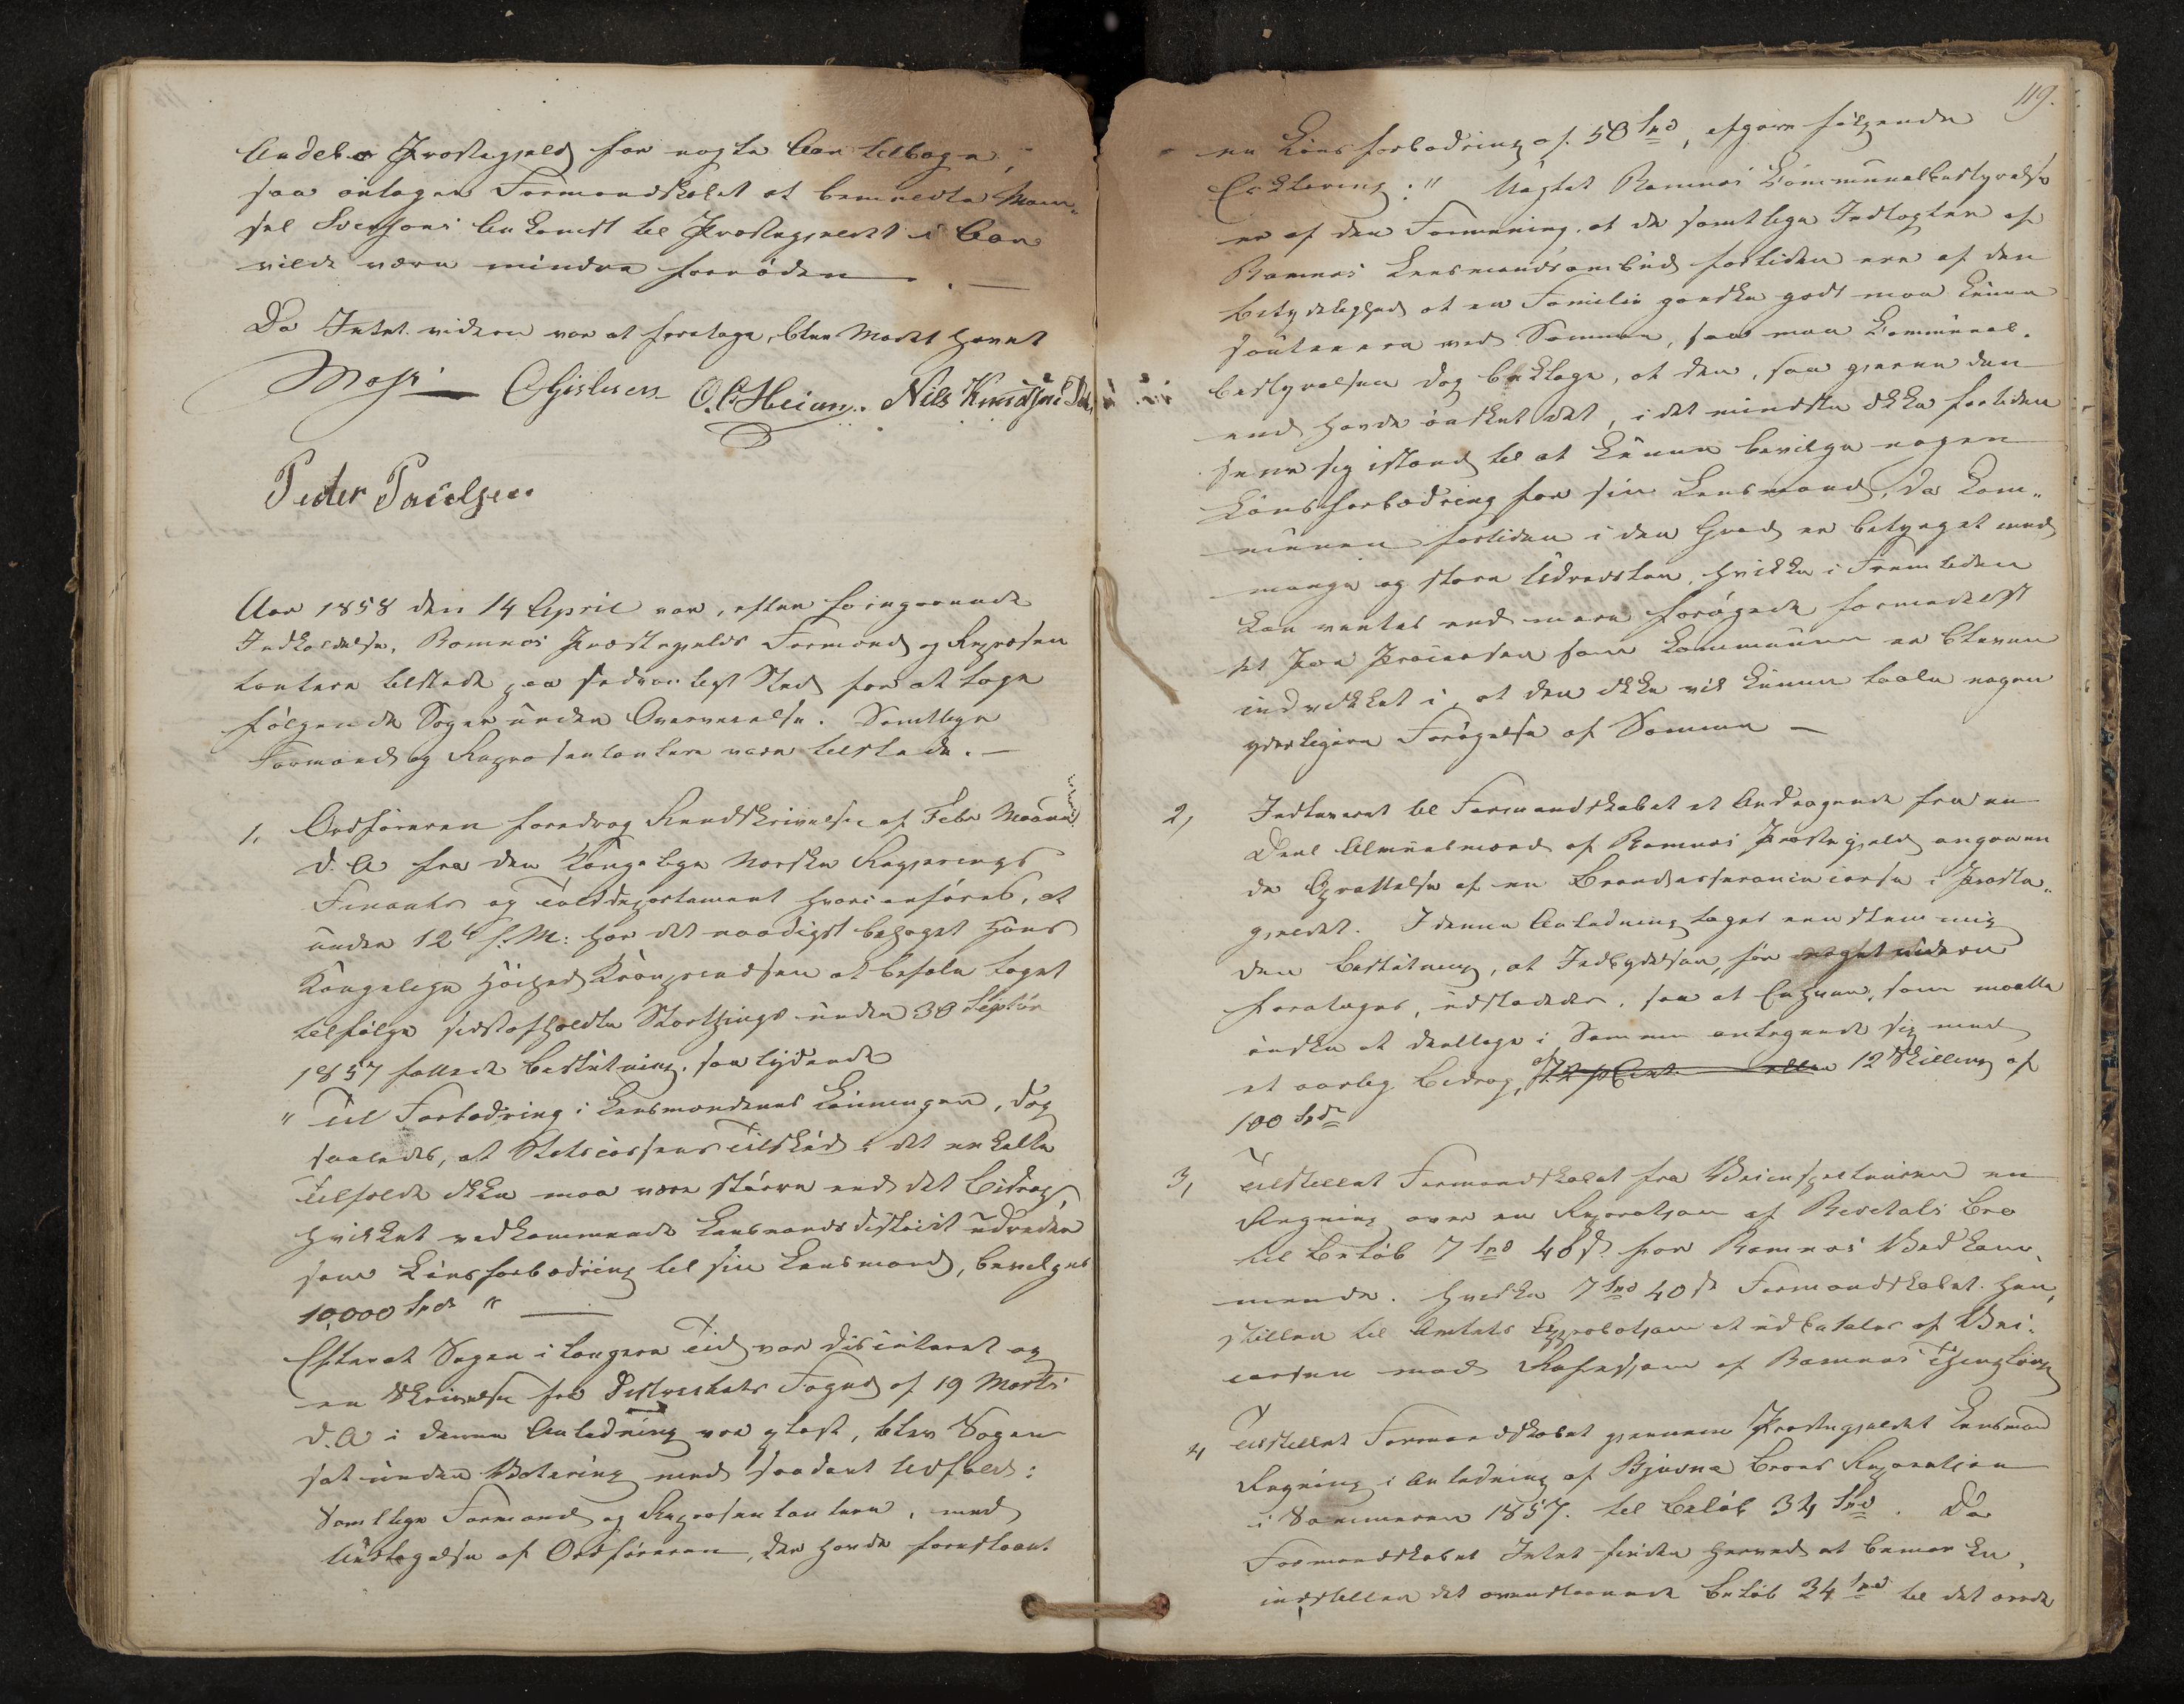 Andebo Præstegjeld for nogle Aar tilbage,
saa antager Formandskabet at bemeldte Mam-
sel Svensons Ankomst til Præstegjeldet i Aar
vilde være mindre fornøden.—
Da Intet videre var at foretage, blev Mødet hævet
O. C. Heian. Nils Knudsen
Peder Paulsen
Aar 1858 den 14 April var, efter foregaaende
Indkaldelse, Ramnæs Præstegjelds Formænd og Repræsen
tantere tilstede paa sædvanligt Sted for at tage
følgende Sager under Overveielse. Samtlige
Formænd og Repræsentantere vare tilstede.—
1, Ordføreren foredrog Rundskrivelse af Febr Maaned
d. A fra den Kongelige Norske Regjerings
Finants og Tolddepartement hvori anføres, at
under 12te f. M: har det naadigst behaget Hans
Kongelige Høihed Kronprindsen at befale taget
tilfølge sidstafholdte Storthings under 30 Septbr
1857 fattede Beslutning, saa lydende
" Til Forbedring i Lensmændenes Lønninger, dog
saaledes, at Statscassens Tilskud i det enkelte
Tilfælde ikke maa være større end det Bidrag,
hvilket vedkommende Lensmandsdistrict udreder
som Lønsforbedring til sin Lensmand, bevilges
10,000 Spd "—
Efterat Sagen i længere Tid var discuteret og
en Skrivelse fra Districtets Foged af 19 Marts
d. A i denne Anledning var oplæst, blev Sagen
sat under Votering med saadant Udfald:
Samtlige Formænd og Repræsentantere, med
Undtagelse af Ordføreren, der havde foreslaaet
119.
en Lønsforbedring af 50 Spd, afgave følgende
Erklæring: " Uagtet Ramnæs Communalbestyrelse
er af den Formening, at de samtlige Indtægter af
Ramnæs Lensmandsombud fortiden ere af den
Betydelighed at en Familie ganske godt maa kunne
soutenere ved Samme, saa maa Communal-
bestyrelsen dog beklage, at den, saa gjerne den
end havde ønsket det, i det mindste ikke fortiden
seer sig istand til at kunne bevilge nogen
Lønsforbedring for sin Lensmand, da Com-
munen fortiden i den Grad er betynget med
mange og store Udredsler, hvilke i Fremtiden
kan ventes end mere forøgede formedelst
et Par Processer som Communen er bleven
indviklet i, at den ikke vil kunne taale nogen
yderligere Forøgelse af Samme —
2, Indleveret til Formandskabet et Andragende fra en
Deel Almuesmænd af Ramnæs Præstegjeld angaaen
de Oprettelse af en Brandassurancecasse i Præste-
gjeldet. I denne Anledning toges eenstemmig
den Beslutning, at Indbydelser, før noget videre
foretages, udstædes, saa at Enhver, som maatte
ønske at deeltage i Samme antegnede sig med
et aarlig Bidrag, af 12 Skilling af
100 Spd
3, Tilstillet Formandskabet fra Veiinspecteuren en
Regning over en Reparation af Revetals Bro
til Beløb 7 Spd 40 s. for Ramnæs Vedkom-
mende. Hvilke 7 Spd 40 s Formandskabet hen-
stiller til Amtets Approbation at udbetales af Vei-
cassen mod Refusion af Ramnæs Thinglaug
4, Tilstillet Formandskabet gjennem Præstegjeldets Lensmand
Regning i Anledning af Bjuerne Broes Reparation
i Sommeren 1857. til Beløb 34 Spd. Da
Formandskabet Intet finder herved at bemærke,
indstilles det ovenstaaende Beløb 34 Spd til det ærede